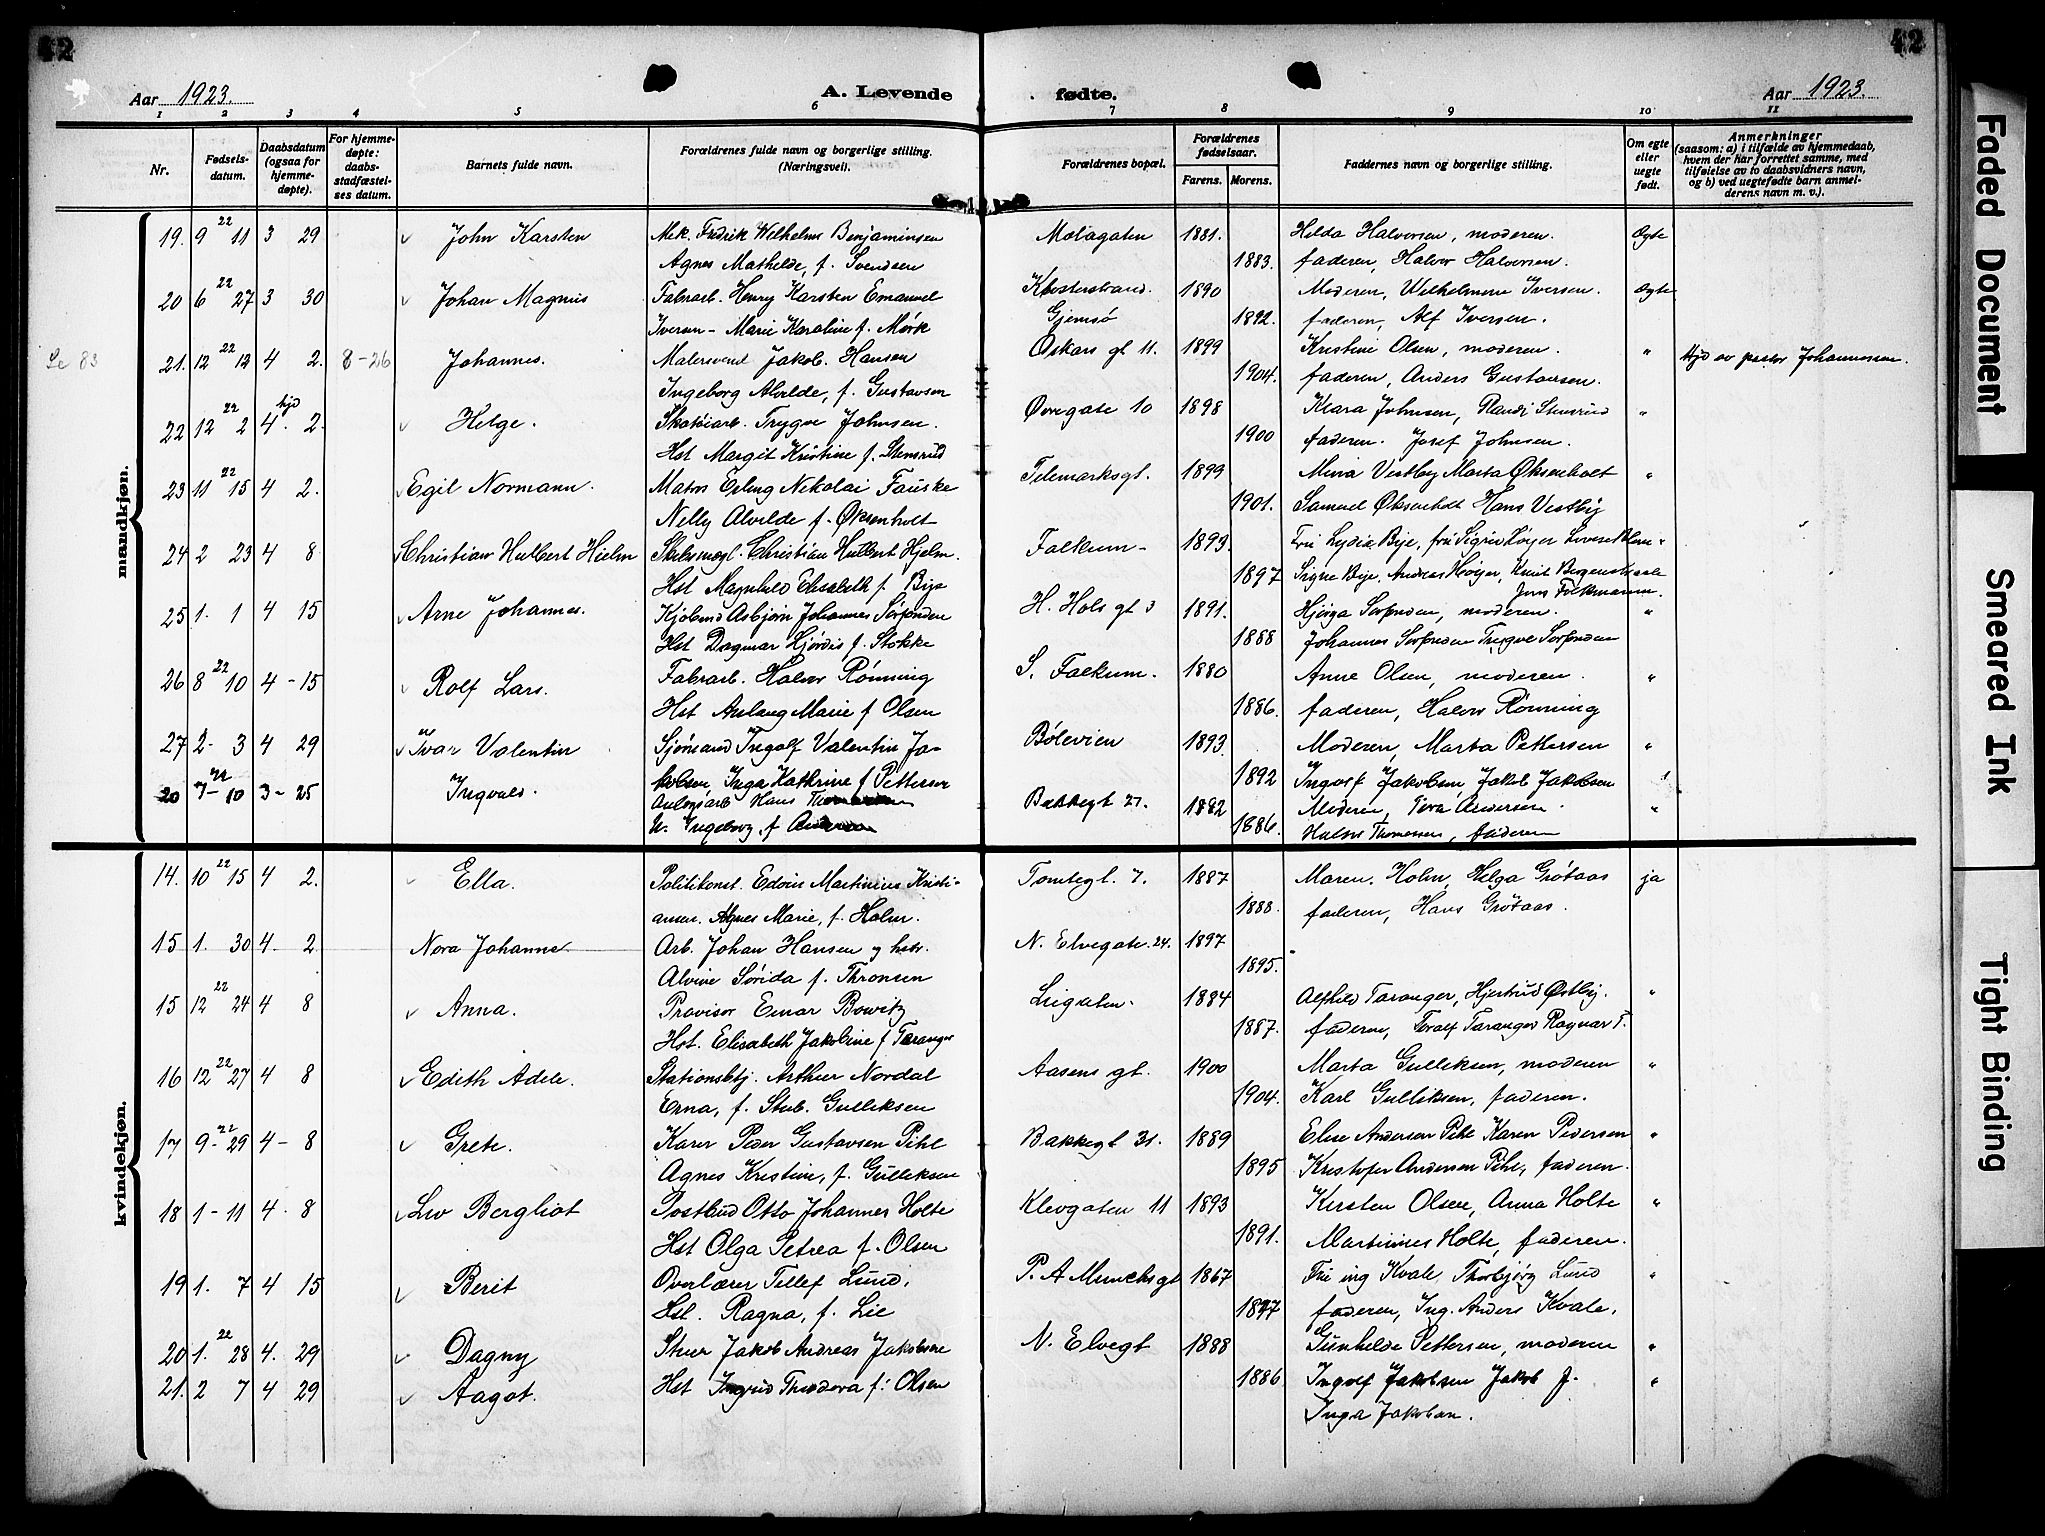 42
42
Aar 1923.
A. Levende fødte.
Aar 1923.
1 2 3 4 5 6 7 8 9 10 11
Nr.
Fødsels-
datum.
Daabsdatum
(ogsaa for
hjemme-
døpte).
For hjemme-
døpte:
daabs-
stadfæstel-
ses datum.
Barnets fulde navn.
Forældrenes fulde navn og borgerlige stilling.
(Næringsvei).
Forældrenes bopæl.
Forældrenes
fødselsaar.
Farens. Morens.
Faddernes navn og borgerlige stilling.
Om egte
eller
uegte
født.
Anmerkninger
(saasom: a) i tilfælde av hjemmedaab,
hvem der har forrettet samme, med
tilføielse av to daabsvidners navn,
og b) ved uegtefødte barn anmel-
derens navn m. v.).
mandkjøn.
19. 9 22 11 3 29 John Karsten Mek. Fredrik Wilhelm Benjaminsen Molagaten 1881. Hilda Halvorsen, moderen. Ægte
Agnes Mathilde, f. Svendsen 1883. faderen, Halvor Halvorsen.
20 6 22 27 3 30 Johan Magnus Fabrarb. Henry Karsten Emanuel Klosterstrand. 1890 Moderen, Wilhelmine Iversen. Ægte
Iversen - Marie Karoline f. Mørk Gjemsø 1892. faderen, Alf Iversen.
21. 12 22 12 4 2. 8-26 Johannes. Malersvend Jakob Hansen Oskars gt 11. 1899 Kristine Olsen, moderen. " Hjd av pastor Johannessen.
Ingeborg Alvilde, f. Gustavsen 1904. faderen, Anders Gustavsen.
22 12 22 2 4 hjd 2. Helge. Skotøiarb. Trygve Johnsen. Øvregate 10 1898 Klara Johnsen, Randi Stensrud "
Hst Margit Kristine f. Stensrud 1900 faderen. Josef Johnsen.
23 11 22 15 4 2. Egil Normann. Matros Erling Nikolai Fauske Telemarksgt. 1899 Mina Vestby Marta Øksenholt "
Nelly Alvilde f. Øksenholt 1901. Samuel Øksenholt Hans Vestby
24 2 23 4 8 Christian Hulbert Hielm Christian Hulbert Hjelm. Falkum - 1893. Fru Lydia Bye, fru Sigrid Høyer "
Hst Magnhild Elisabeth f. Bye 1897 Signe Bye. Andreas Høyer, Knut
Jens Folkmann.
25 1. 1 4 15 Arne Johannes. Kjøbmd Asbjørn Johannes H. Hols gt 3 1891. moderen. "
Hst Dagmar Hjørdis f. Stokke 1888 Johannes Trygve
26 8 22 10 4 - 15 Rolf Lars. Fabrarb. Halvor Rønning S. Falkum. 1880 Anne Olsen, moderen. "
Hst Aslaug Marie f Olsen 1886. faderen, Halvor Rønning
27 2- 3 4 29 Ivar Valentin Sjømand Ingolf Valentin Ja- Bølevien 1893. Moderen, Marta Pettersen "
kobsen, Inga Kathrine f Pettersen 1892 Ingolf Jakobsen, Jakob Jakobsen
20 7 22 10 3 - 25 Ingvald. Hans Bakkegt 27. 1882 Moderen, Tora Andersen. "
Ingeborg, f 1886. Halvor Thomassen, faderen
kvindekjøn.
14. 10 22 15 4 2. Ella. Politikonst. Edvin Martinius Kristi- Tomtegt. 7. 1887 Maren Holm, Helga Grøtaas ja
ansen. Agnes Marie, f. Holm. 1888. faderen, Hans Grøtaas.
15 1. 30 4 2 Nora Johanne Arb. Johan Hansen og hstr. N. Elvegate. 24. 1897 "
Alvine f. Thronsen 1895.
15 12 22 24 4 8 Anna. Provisor Einar Bowitz Ligaten. 1884 Alfhild Taranger, Hjertrud Østby. "
Hst. Elisabeth Jakobine f Taranger 1887. faderen, Toralf Taranger Ragnar T.
16 12 22 27 4 8 Edith Adele. Stationsbtj. Arthur Nordal Aasens gt. 1900 Marta Gulliksen, moderen "
Erna, f. Stub. Gulliksen 1904. Karl Gulliksen, faderen.
17 9- 22 29 4 - 8 Grete. Karer Peder Gustavsen Pihl Bakkegt 31. 1889 Elise Andersen Pihl Karen Pedersen "
Agnes Kristine, f. Gulliksen 1895 Kristofer Andersen Pihl, faderen.
18 1 - 11 4 - 8 Liv Bergliot Postbud Otto Johannes Holte Klevgaten 11 1893 Kirsten Olsen, Anna Holte "
Hst Olga Petrea f. Olsen 1891. Martinius Holte, faderen.
19 1. 7 4 15 Berit Overlærer Tellef Lund, P. A Munchsgt 1867 Fru ing Kvale, Thorbjørg Lund "
Hst. Ragna, f. Lie 1877 faderen, Ing. Anders Kvale.
20 1. 22 28 4. 29 Dagny Stuer Jakob Andreas Jakobsen N. Elvegt 1888 Gunhilde Pettersen, moderen "
21. 2 7 4 29 Aagot. Hst Ingrid Theodora f. Olsen 1886 Ingolf Jakobsen Jakob J. "
Inga Jakobsen.
Faded Document
Smeared Ink
Tight Binding